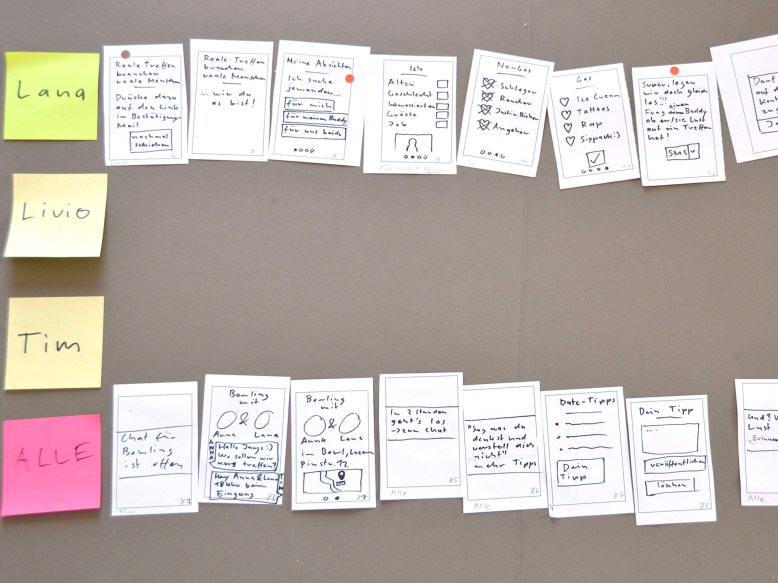 Lana
Reale Treffen
brauchen
reale Menschen
Drücke dazu
auf den Link
in Bestätigungs-
Mail
nochmal
schicken
Reale Treffen
brauchen
reale Menschen
... wie du
es bist!
Meine Absichten
Ich suche
jemanden...
für mich
für meinen Buddy
für uns beide
Ich
Alter
Geschlecht
Interessen
Grösse
Job
No-Gos
Schlager
Raucher
Justin Bieber
Angeber
Gos
Ice Cream
Tattoos
Rap
Sixpack:)
Super, legen
wir doch gleich
los!!!
Frag einen Buddy
ob er/sie Lust
auf ein Treffen
hat!
SMS
Livio
Tim
ALLE
Chat für
Bowling
ist offen
82
Bowling
mit
&
Anna Lana
Hallo Jungs:)
Wo sollen wir
uns treffen?
Hey Anna & Lana
18 Uhr beim
Eingang
Bowling
mit
&
Anna Lana
im Bowl, Luzern
Pinstr. 12
In 2 Stunden
geht's los
→ zum Chat
85
Alle
"Sag was du
denkst und
verstell dich
nicht"
mehr Tipps
86
Alle
Date-Tipps
Dein
Tipp
87
Dein Tipp
...
veröffentlichen
löschen
88
Lust
Alle